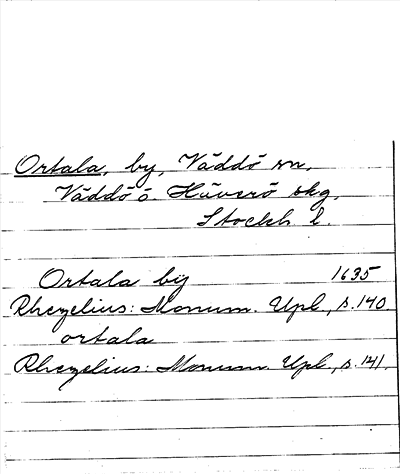 Ortala, by, Väddö sn,
Väddö o. Häverö skg,
Stockh. l.
Ortala bÿ 1635
Rhezelius: Monum. Upl., s. 140.
ortala
Rhezelius: Monum. Upl., s. 141.